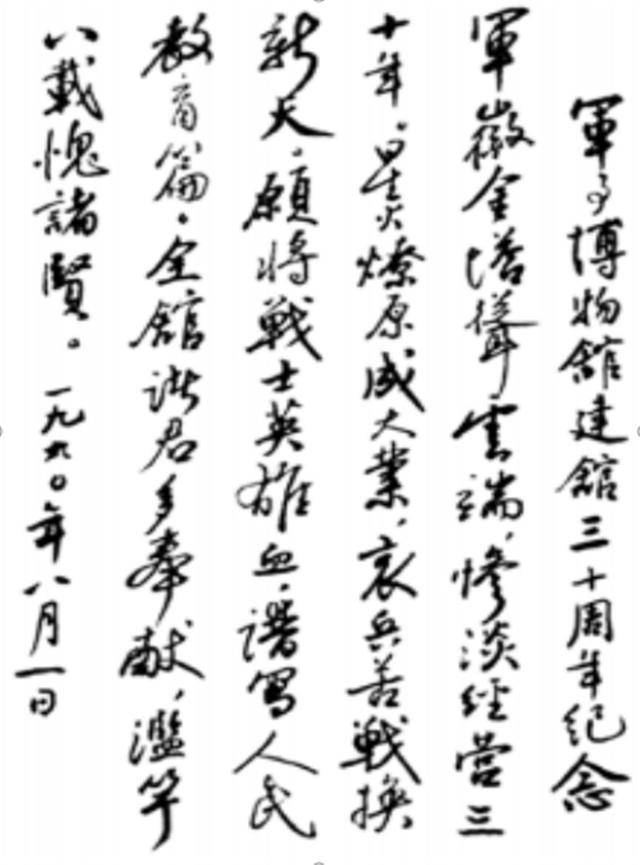 軍事博物館建館三十周年紀念
軍徽金塔聳雲端，慘淡經營三
十年。星火燎原成大業，哀兵苦戰換
新天。願將戰士英雄血，譜寫人民
教育篇。全館諸君多奉献，濫竽
八載愧諸賢。一九九〇年八月一日